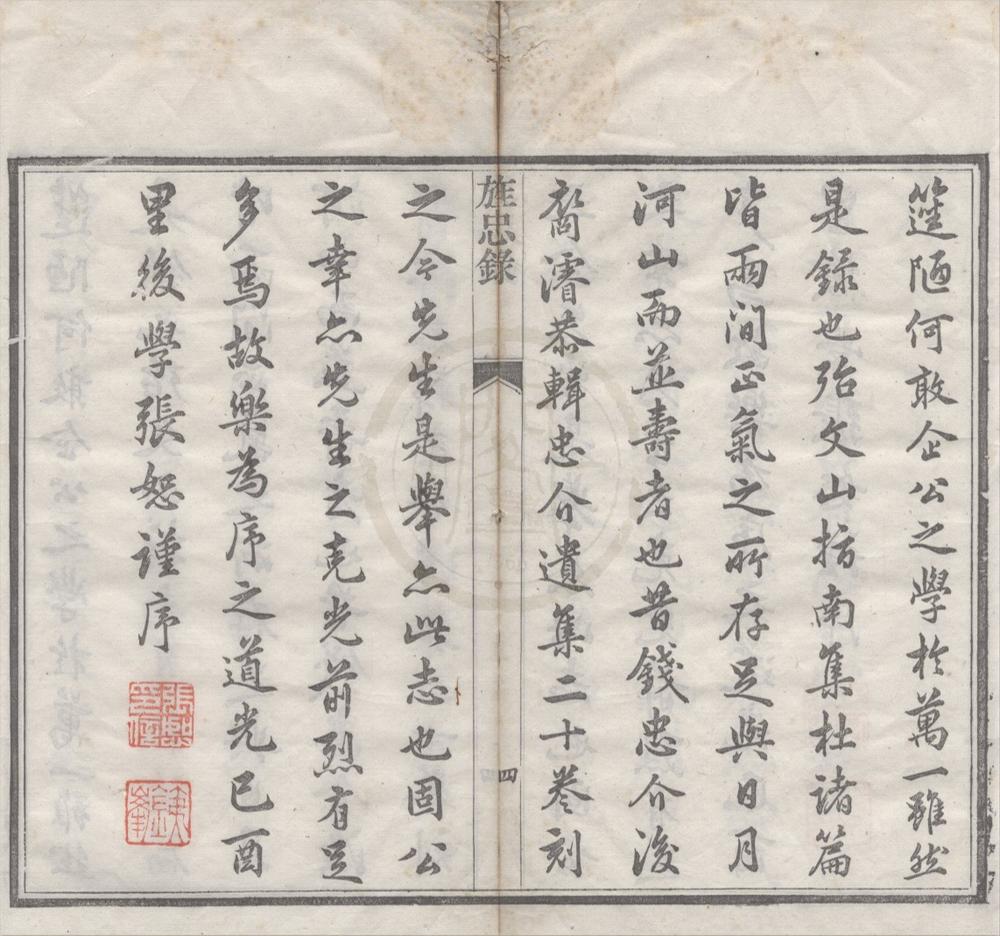 筳陋何敢企公之學於萬一雖然
是録也殆文山指南集杜諸篇
皆兩间正氣之所存足與日月
河山而並壽者也昔錢忠介後
裔濬恭輯忠介遺集二十卷刻
旌忠錄
四
之今先生是舉亦此志也固公
之幸亦先生之克光前烈有足
多焉故樂為序之道光己酉
里後學張恕謹序
張恕印信